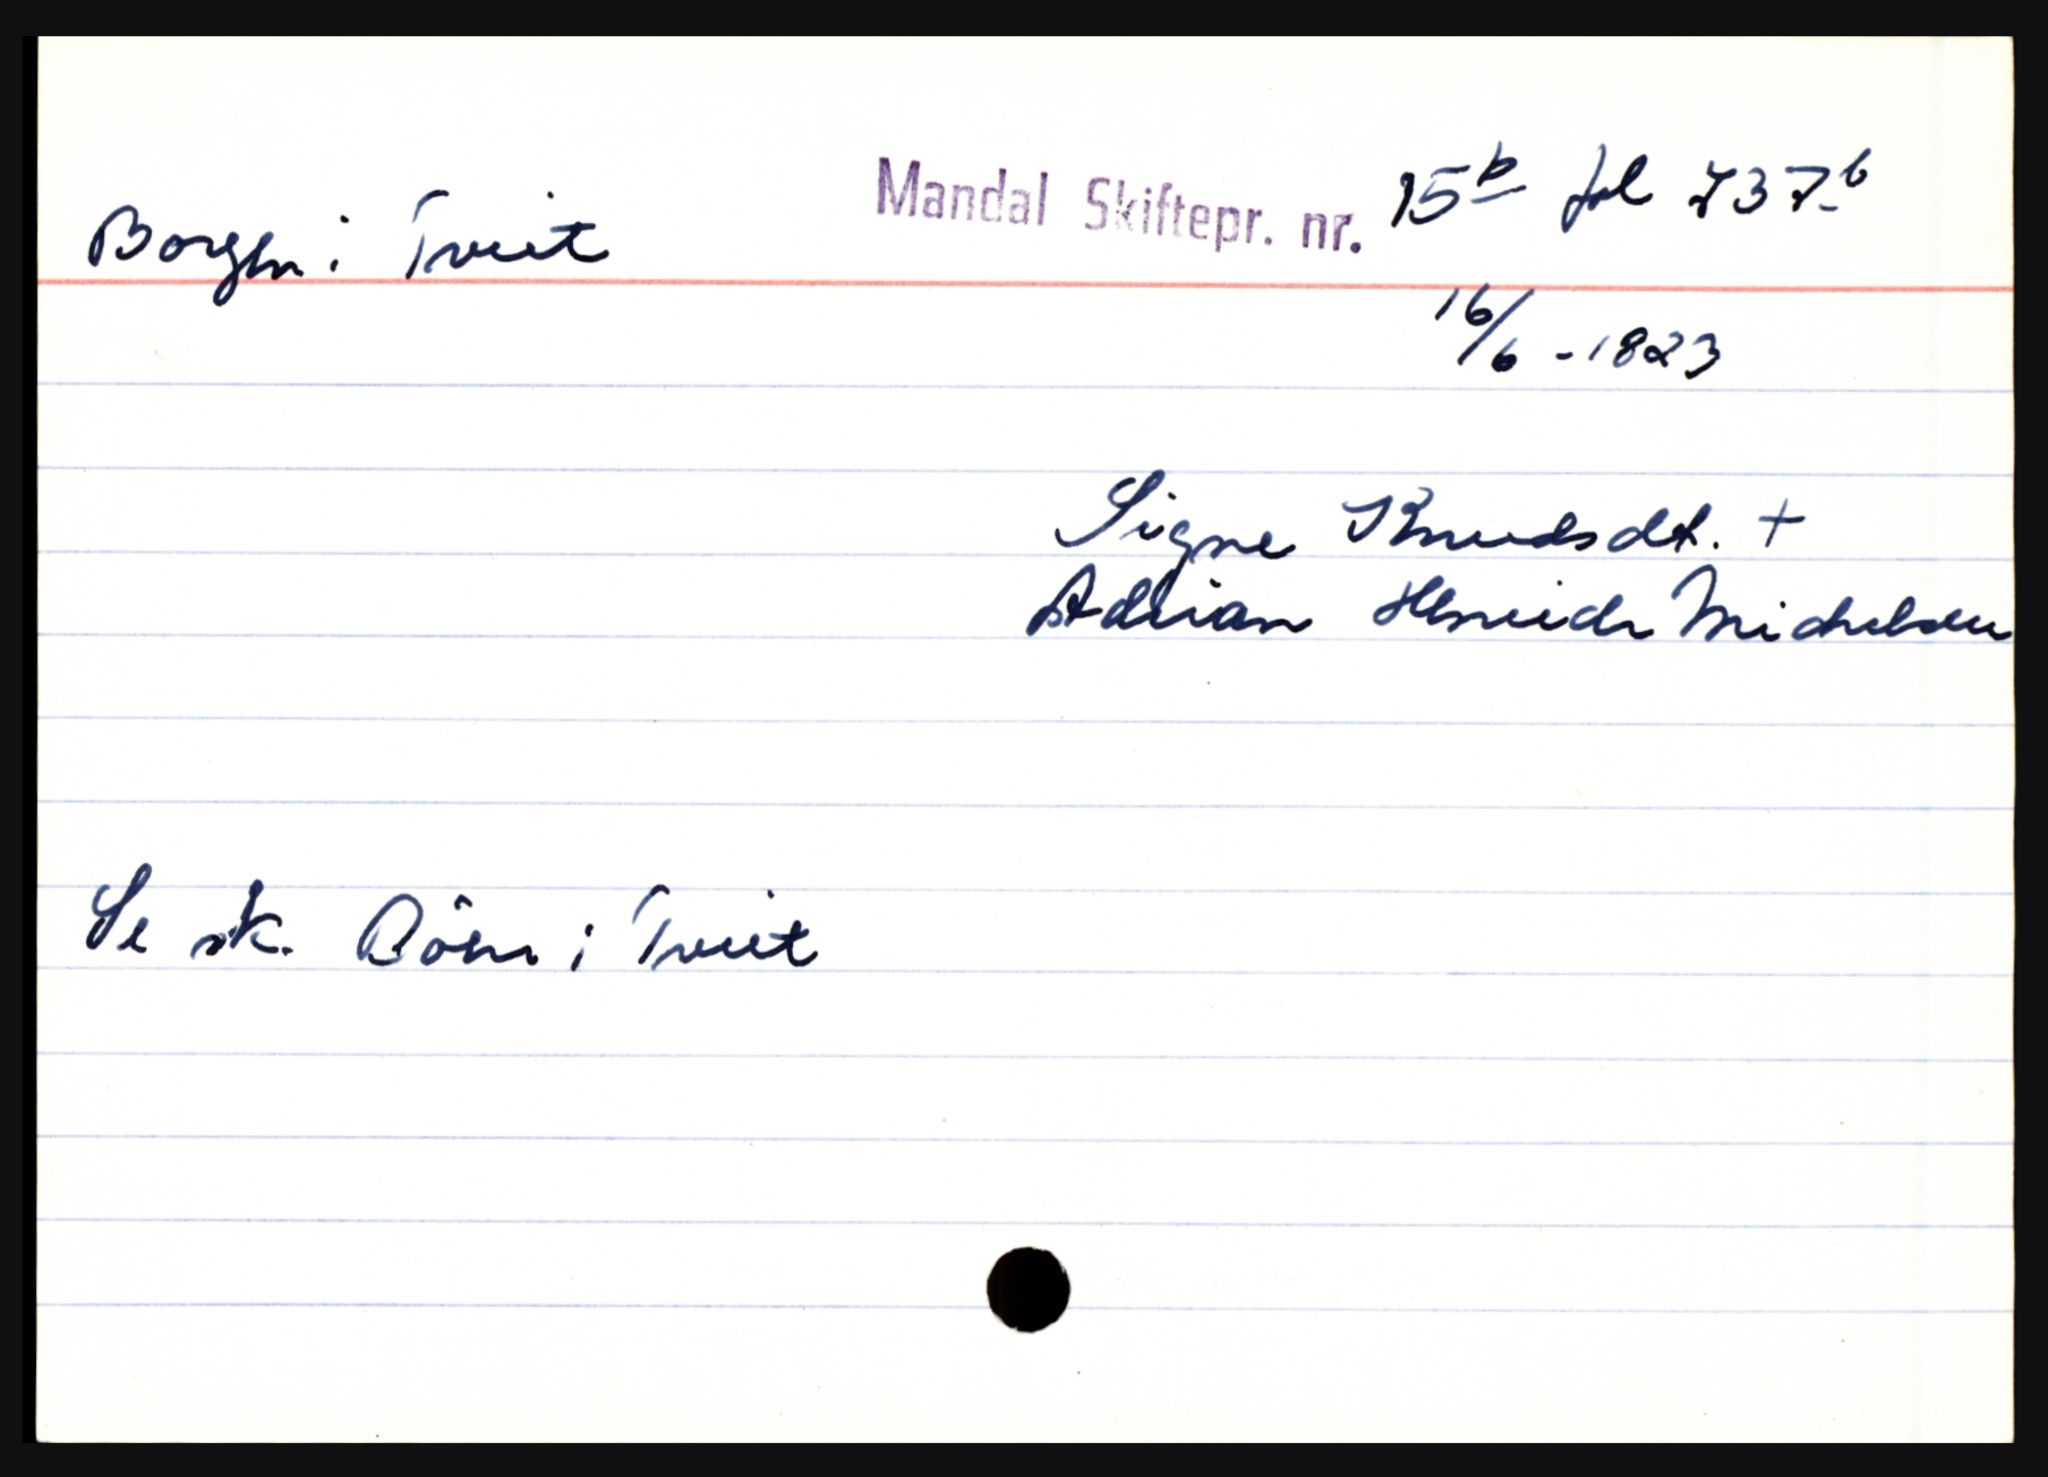 Borgen i Tveit
Mandal Skiftepr. nr. 15b fol 737b
16/6 - 1823
Signe Knudsdt. +
Adrian Henrich Michelsen
Se sk. Böen i Tveit